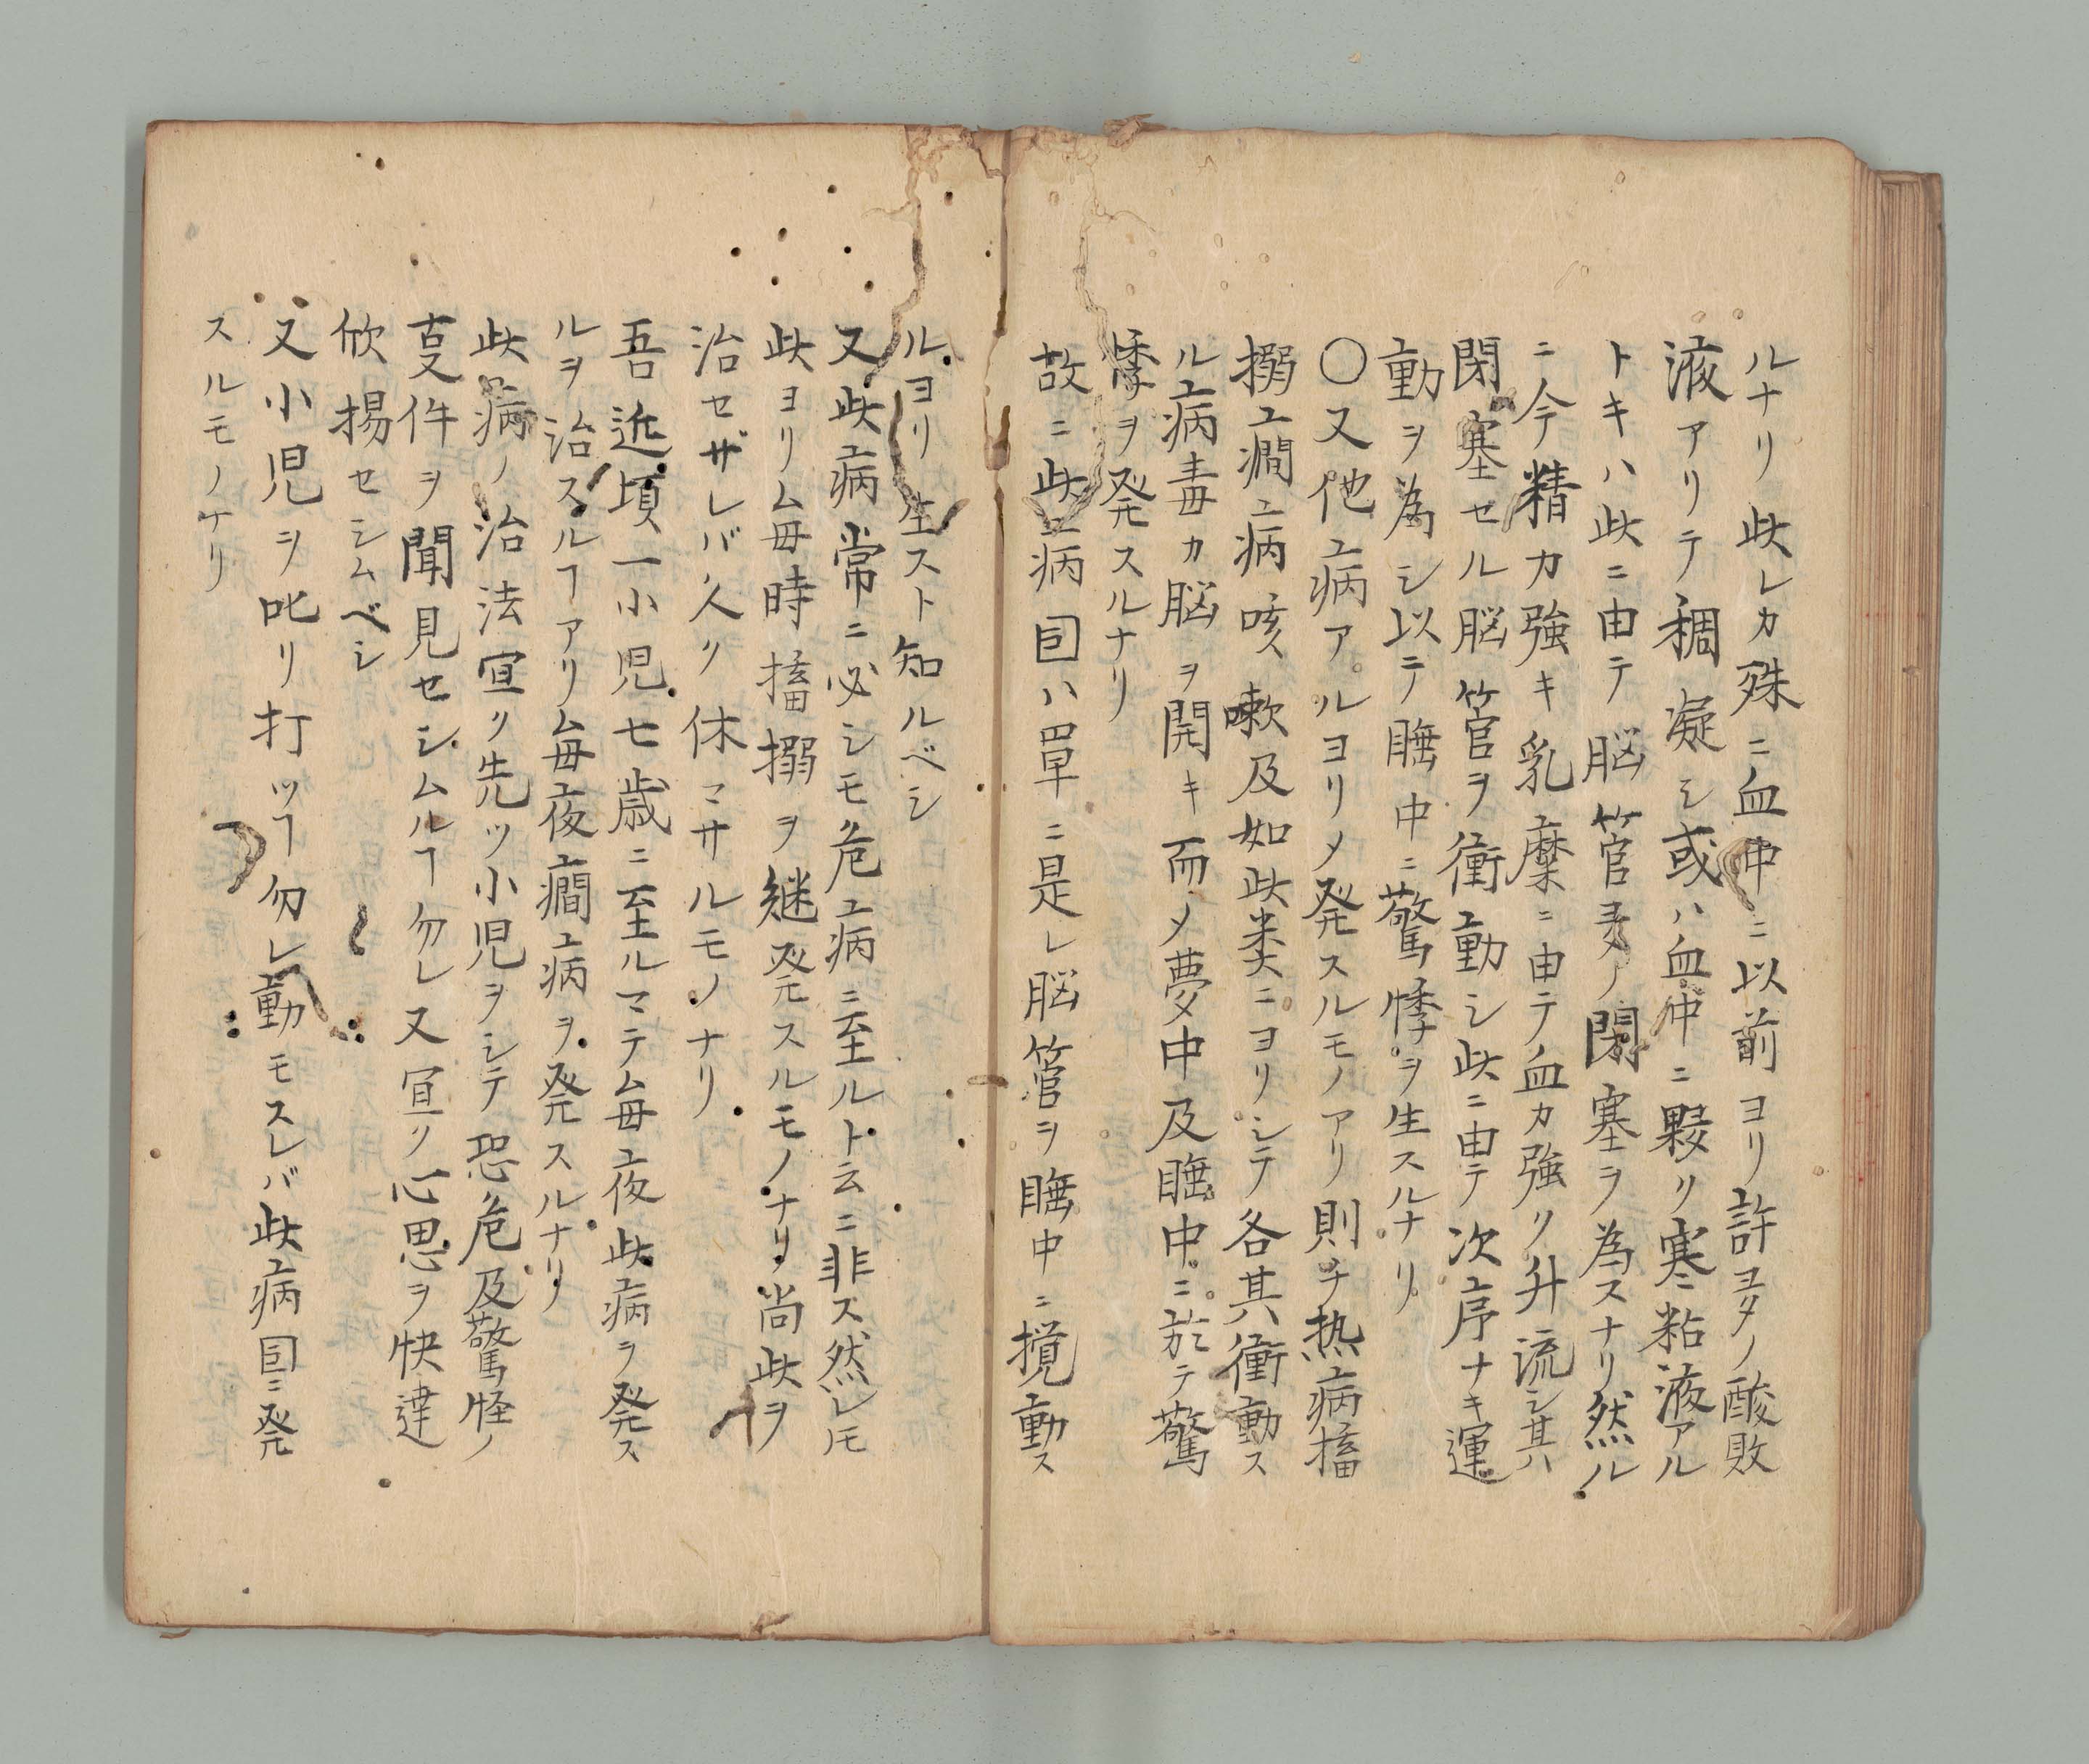 ルナリ此レカ殊ニ血中ニ以前ヨリ許ヨタノ酸敗
液アリテ稠凝シ或ハ血中ニ夥リ寒ニ粘液アル
トキハ此ニ由テ脳管ヨタノ閉塞ヲ為スナリ然ル
ニ今精カ強キ乳糜ニ由テ血カ強ク升流シ其ハ
閉塞セル脳管ヲ衝動シ此ニ由テ次序ナキ運
動ヲ為シ以テ睡中ニ驚悸ヲ生スルナリ
〇又他病アルヨリメ発スルモノアリ則チ热病搐
搦癇病咳嗽及如此类ニヨリシテ各其衝動ス
ル病毒カ脳ヲ開キ而メ夢中及睡中ニ於テ驚
悸ヲ発スルナリ
故ニ此病因ハ罩ニ是レ脳管ヲ睡中ニ攪動ス
ルヨリ生スト知ルベシ
又此病常ニ必シモ危病ニ至ルト云ニ非ス然レモ
此ヨリ毎時搐搦ヲ継発スルモノナリ尚此ヲ
治セザレバ久ク休マサルモノナリ
吾近頃一小児七歳ニ至ルマテ毎夜此病ヲ発ス
ルヲ治スルヿアリ毎夜癇病ヲ発スルナリ
此病ノ治法宜ク先ツ小児ヲシテ恐危及驚怪ノ
叓件ヲ聞見セシムルヿ勿レ又宜ク心思ヲ快達
欣揚セシムベシ
又小児ヲ叱リ打ツヿ勿レ動モスレバ此病因ニ発
スルモノケリ